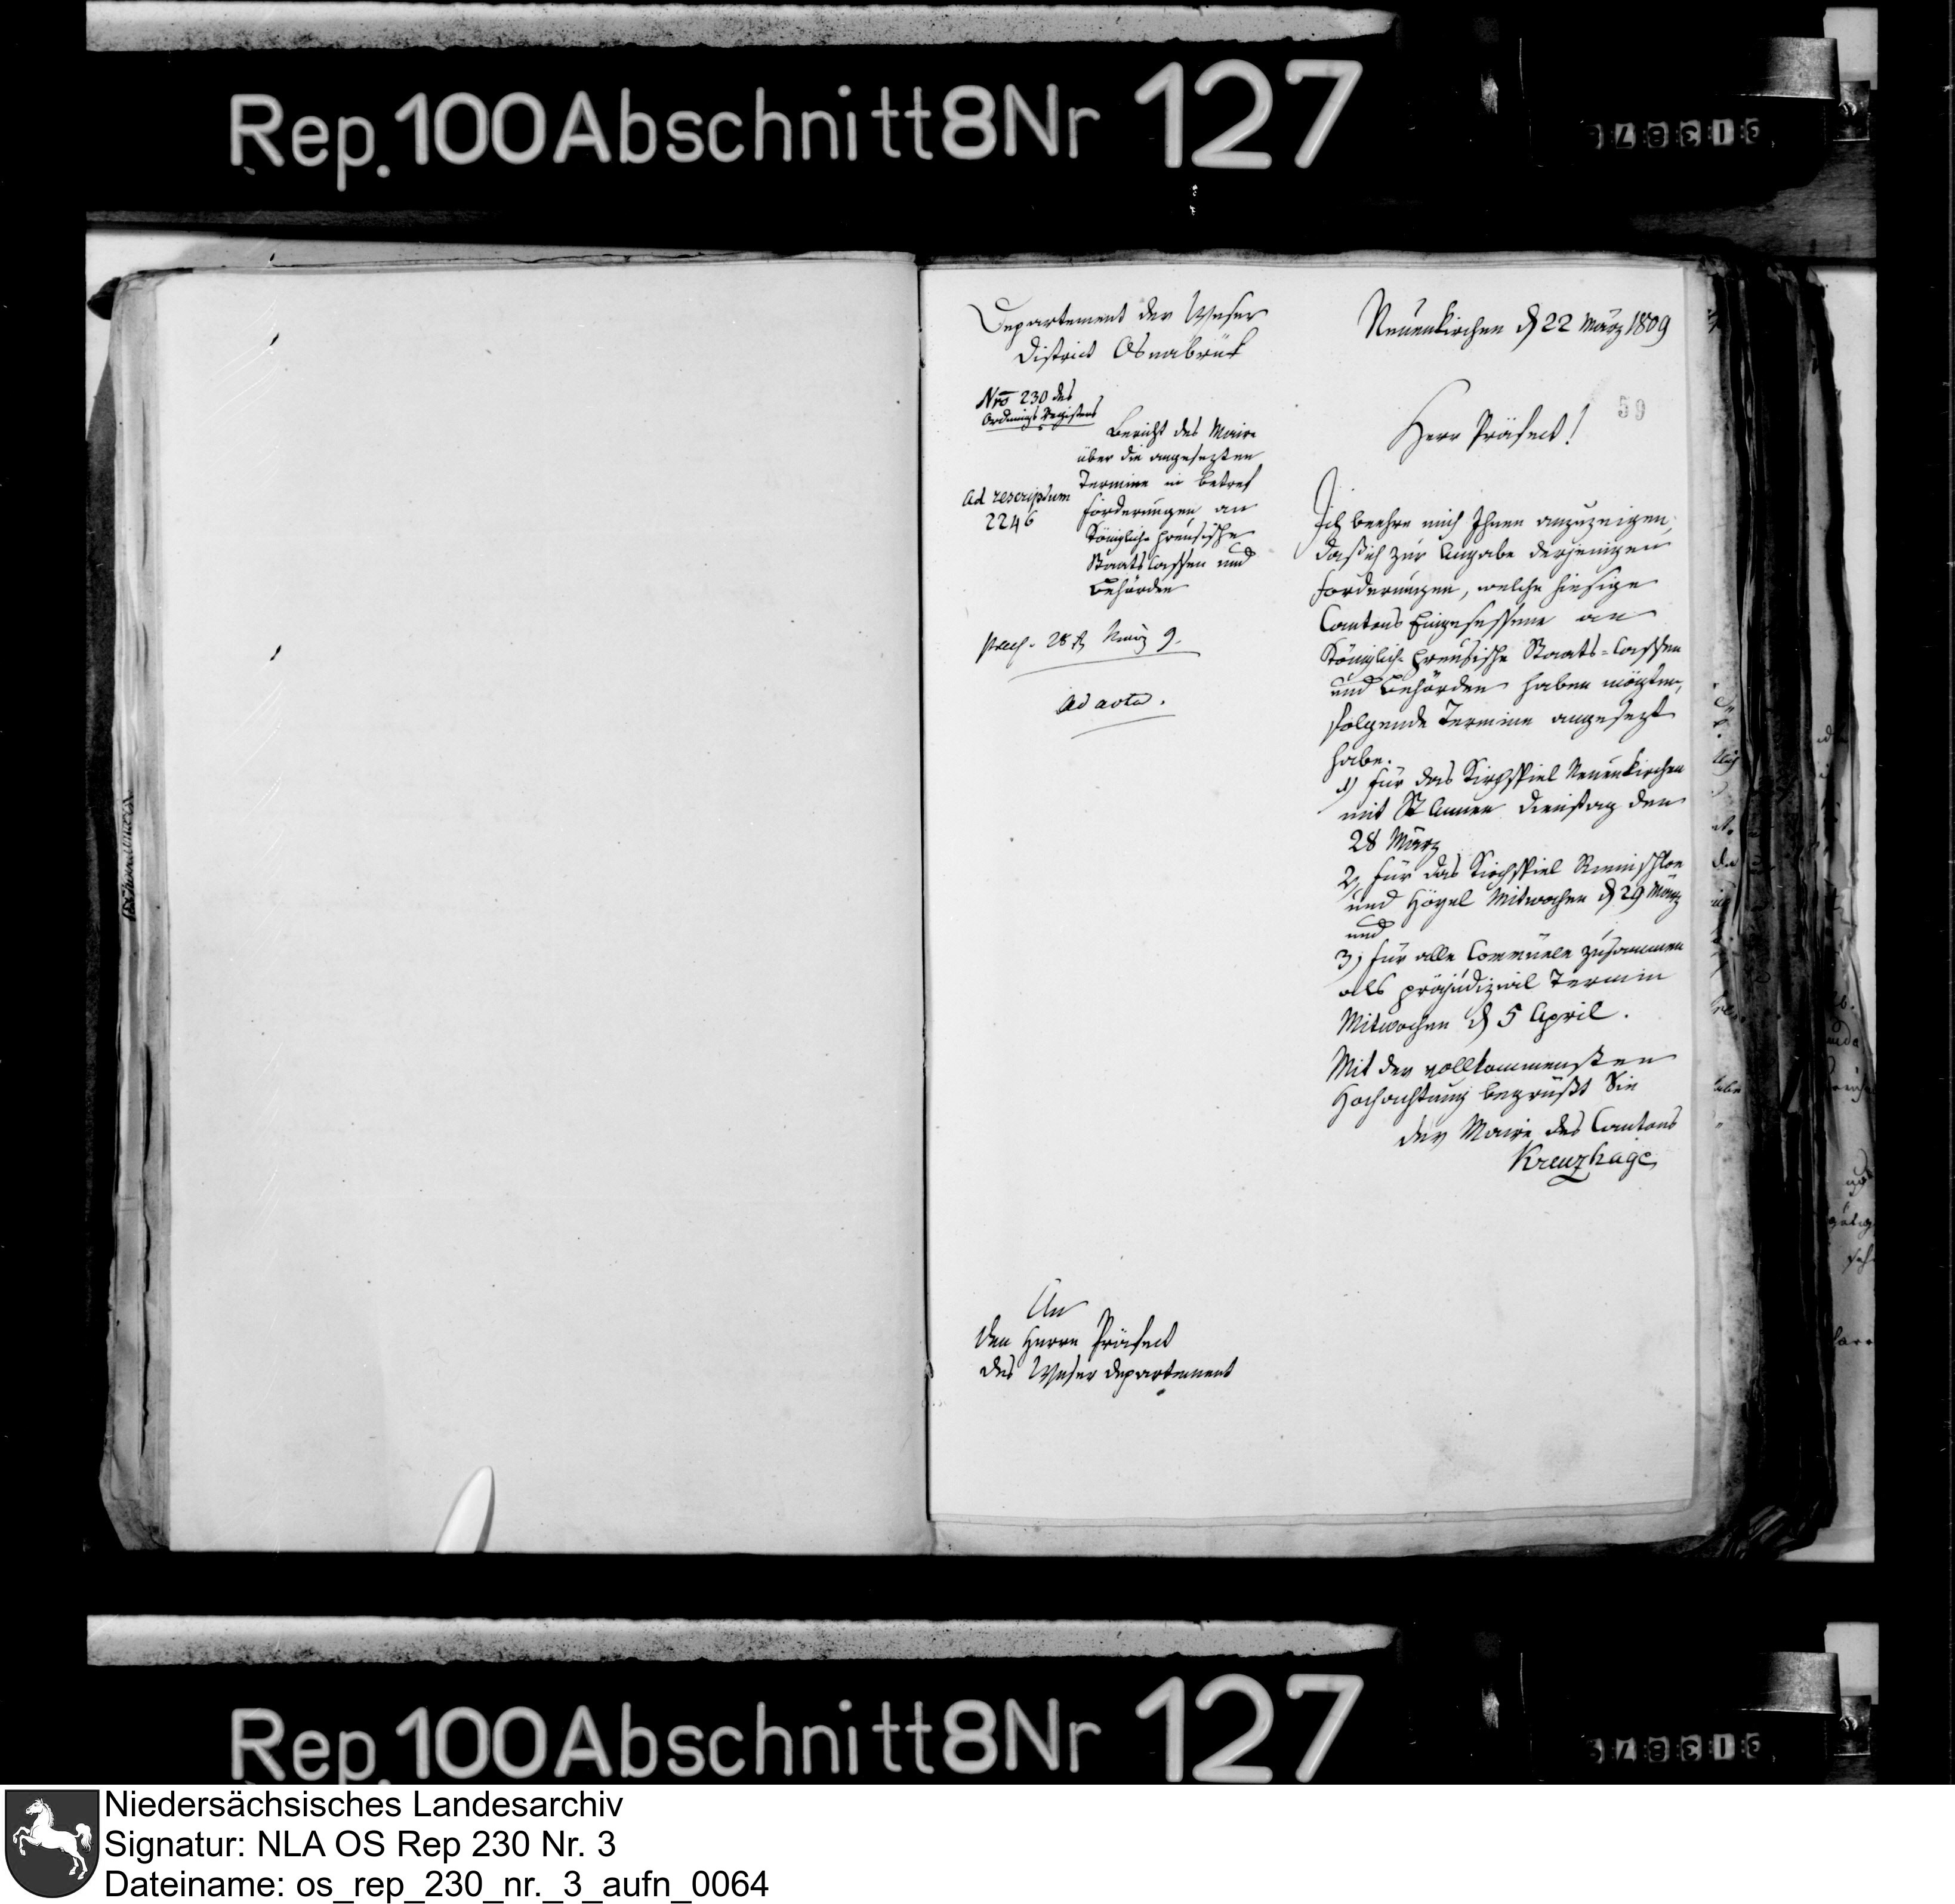 Rep. 100 Abschnitt 8 Nr 127
Departement der Weser
District Osnabrük
Nro 230 des
Ordnungs Registers
Bericht des Maire
über die angesezten
Termine in betref
forderungen an
Königlich preusische
Staats Cassen und
Behörden
Ad rescriptum
2246
praes. 28 März 9.
ad acta.
An
den Herrn Präfect
des Weser departement
Neuenkirchen d 22 März 1809
59
Herr Präfect!
Ich beehre mich Ihnen anzuzeigen,
daß ich zur Angabe derjenigen
forderungen, welche hiesige
Cantons Eingesessene an
Königlich preusische Staats-Cassen
und Behörden haben mögten,
folgende Termine angesezt
habe.
1) für das Kirchspiel Neuenkirchen
mit St Annen dienstag den
28 März
2, für das Kirchspiel Riemsloe
und Hoyel Mitwochen d 29 März
und
3, für alle Commünen zusammen
als präjudizial Termin
Mitwochen d 5 April.
Mit der vollkommensten
Hochachtung begrüßt Sie
der Maire des Cantons
Kreuzhage
Rep. 100 Abschnitt 8 Nr 127
Niedersächsisches Landesarchiv
Signatur: NLA OS Rep 230 Nr. 3
Dateiname: os_rep_230_nr._3_aufn_0064